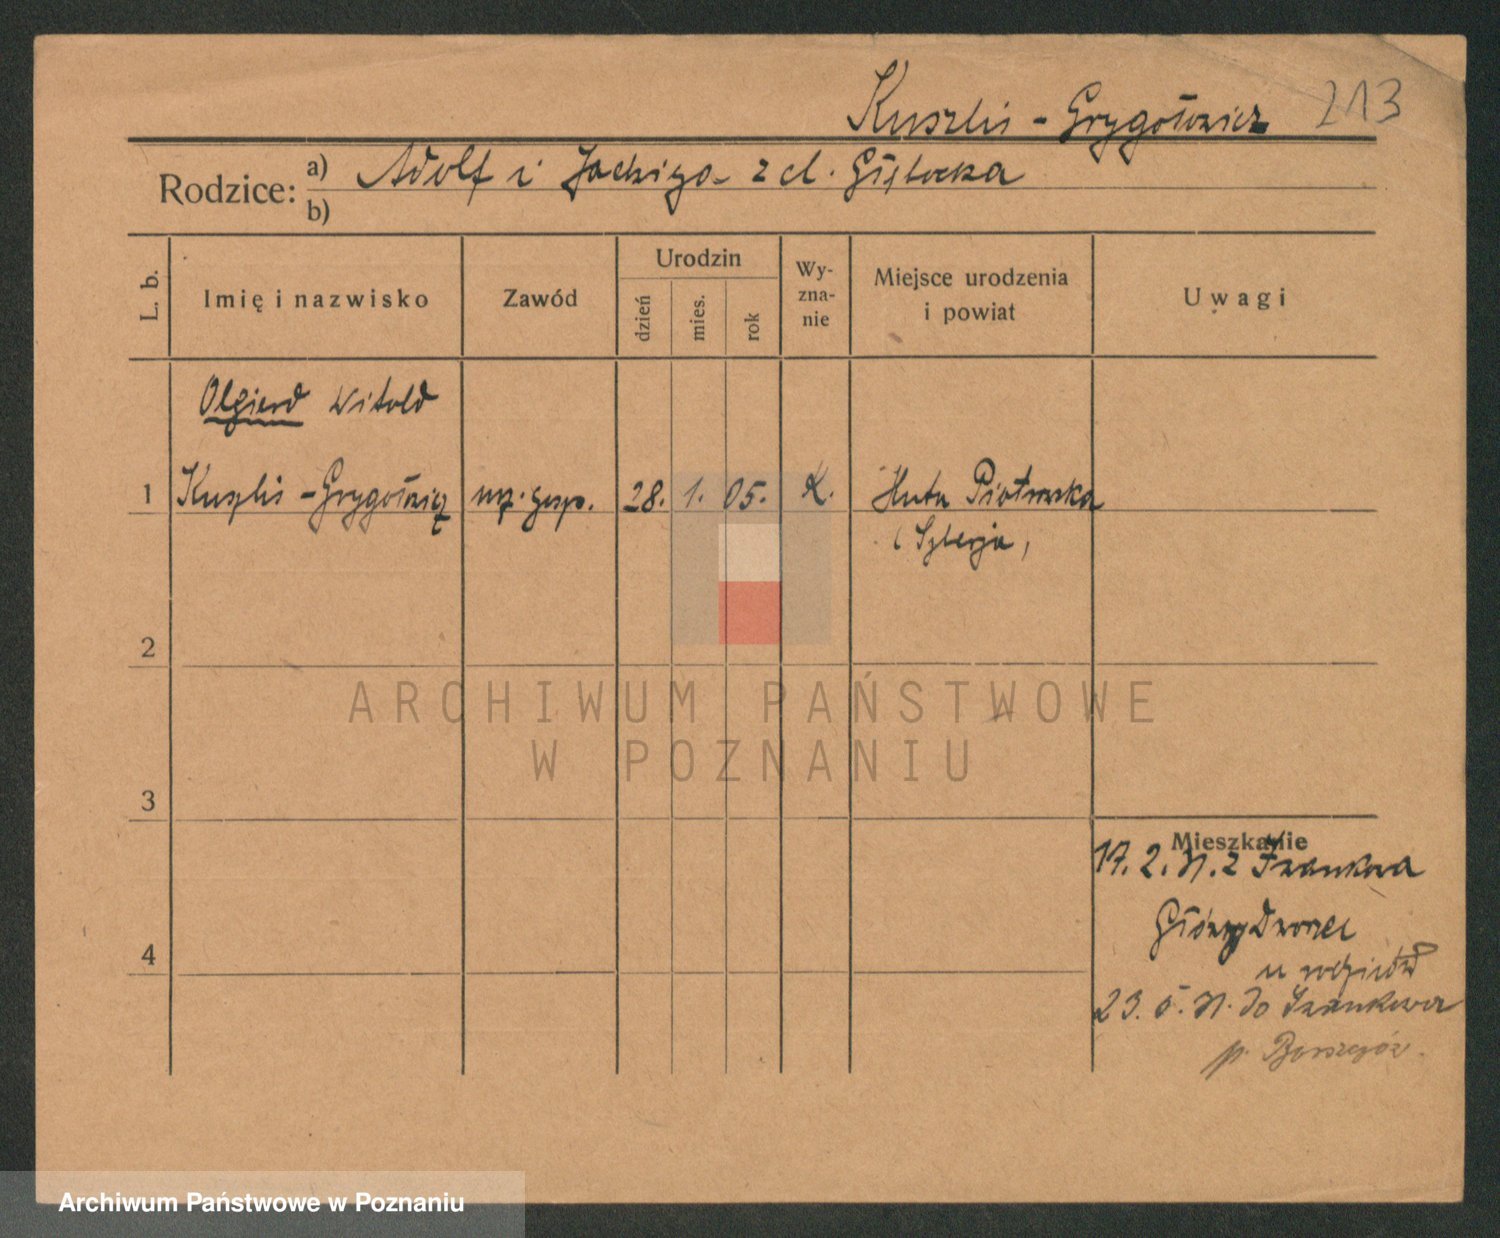 Kuszlis - Grygołowicz 213
Rodzice: a) Adolf i Jadwiga z d.
b)
L. b. Imię i nazwisko Zawód Urodzin dzień mies. rok Wyznanie Miejsce urodzenia i powiat Uwagi
Olgierd Witold
1 Kuszlis - Grygołowicz urz. gosp. 28. 1. 05. K. Huta Piotrowska
(Syberja)
2
3
Mieszkanie
17. 2. z Iwankowa
Główny Dworzec
4
23. 5. do Iwankowa
p. Borszczów.
ARCHIWUM PAŃSTWOWE
W POZNANIU
Archiwum Państwowe w Poznaniu